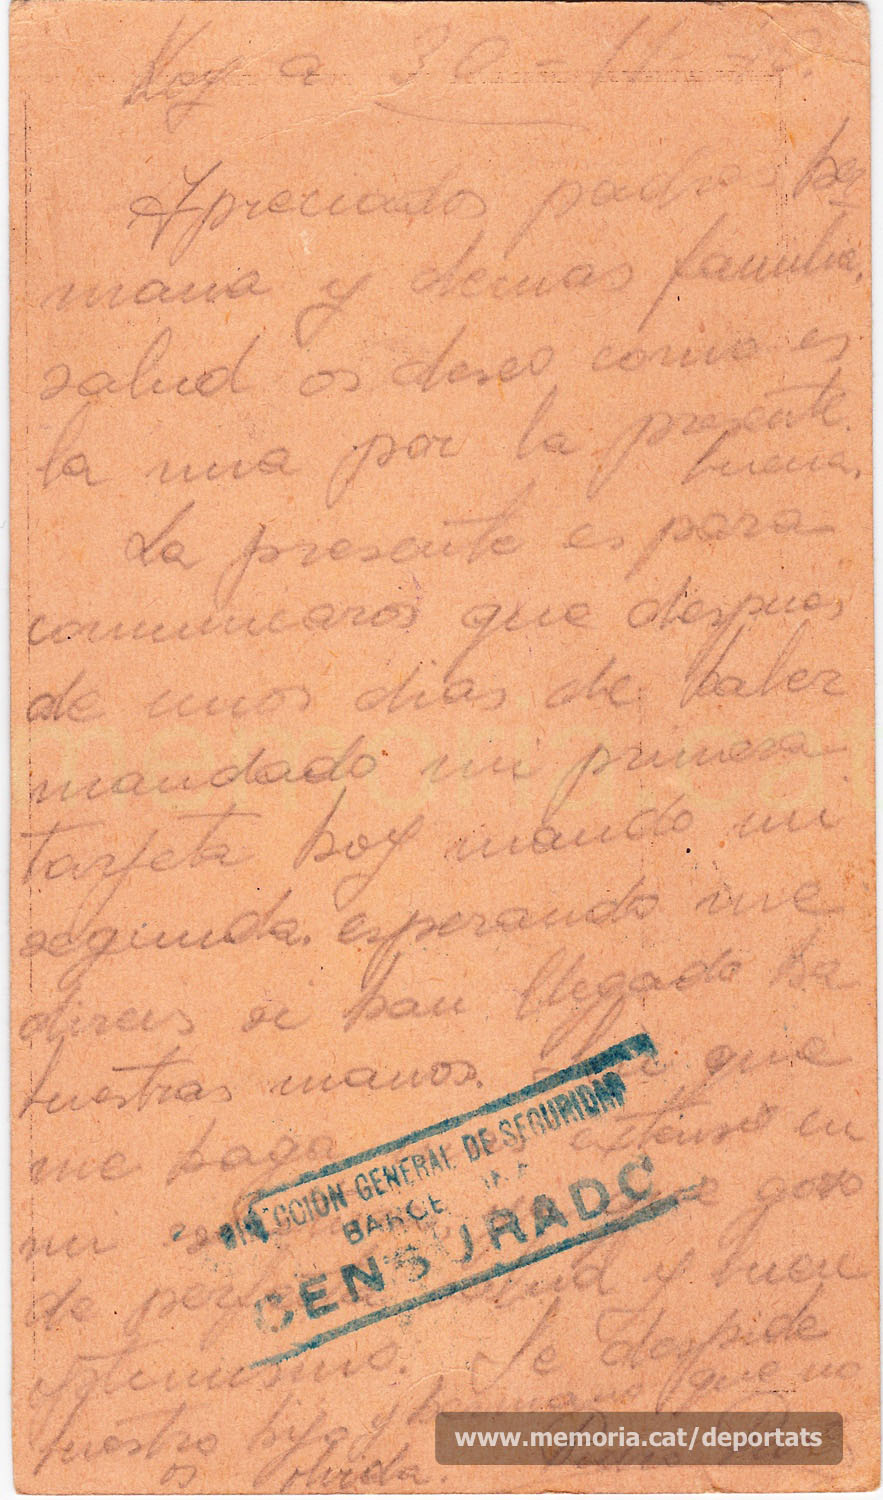 Hoy a 30-11-
Apreciados padres her
mana y demas familia,
salud os deseo como es
la mia por la presente.
buena.
La presente es para
comunicaros que despues
de unos dias de haber
mandado mi primera
tarjeta hoy mando mi
segunda. esperando me
direis si han llegado ha
buestras manos. que
me haga extenso en
mi gozo
de salud y buen
optimismo. Se despide
buestro hijo y hermano que no
os olvida. Pedro
DIRECCIÓN GENERAL DE SEGURIDAD
BARCELONA
CENSURADO
memoria.cat
www.memoria.cat/deportats